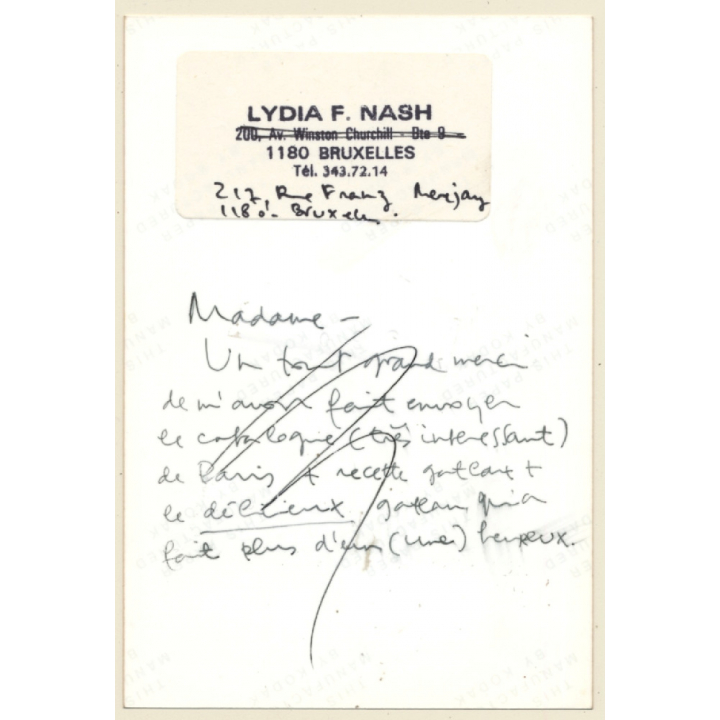 LYDIA F. NASH
200, Av. Winston Churchill - Bte 9
1180 BRUXELLES
Tél. 343.72.14
212, Rue Franz Merjay
1180 - Bruxelles.
Madame -
Un tout grand merci
de m'avoir fait envoyer
le catalogue (très intéressant)
de Paris + recette gateaux +
le délicieux gateau qui a
fait plus d'un (une) heureux.
THIS PAPER
MANUFACTURED
BY KODAK